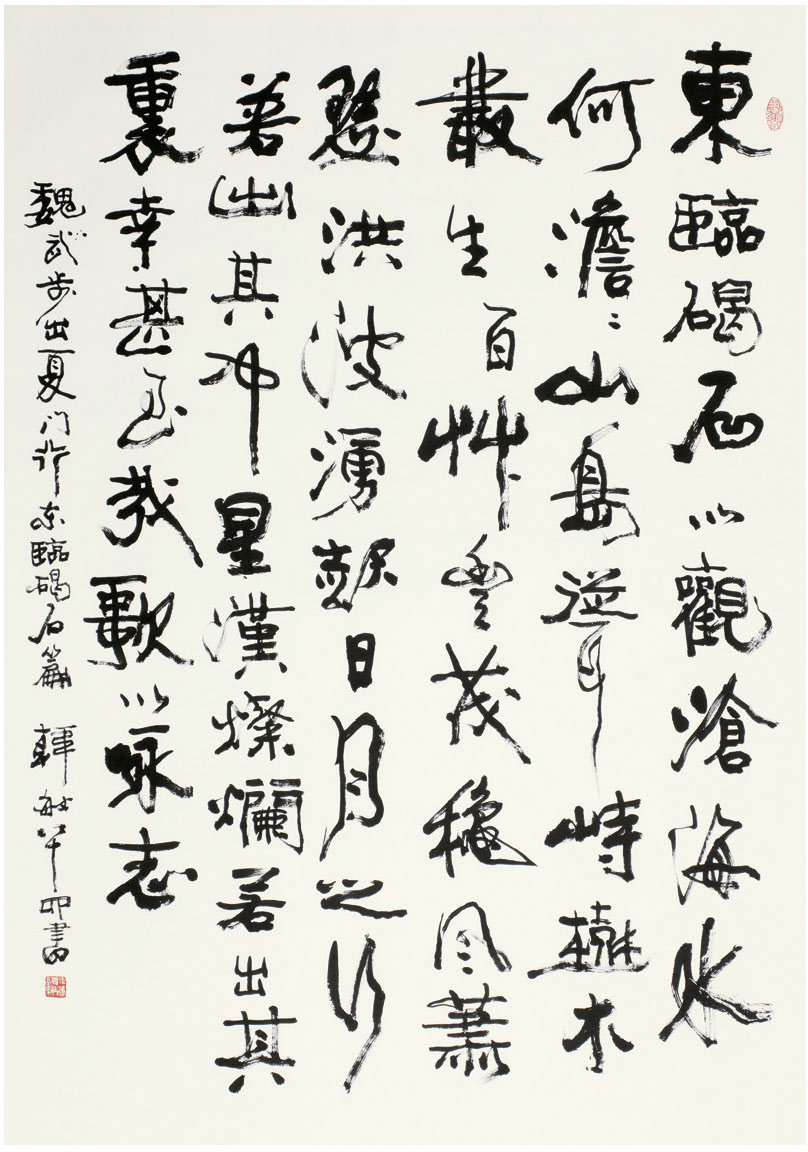 東臨碣石以觀滄海水
何澹〻山島聳峙樹木
叢生百艸豐茂穐風蕭
瑟洪波湧起日月之行
若出其中星漢燦爛若出其
裏幸甚至哉歌以詠志
魏武步出夏门行东臨碣石篇 卯書